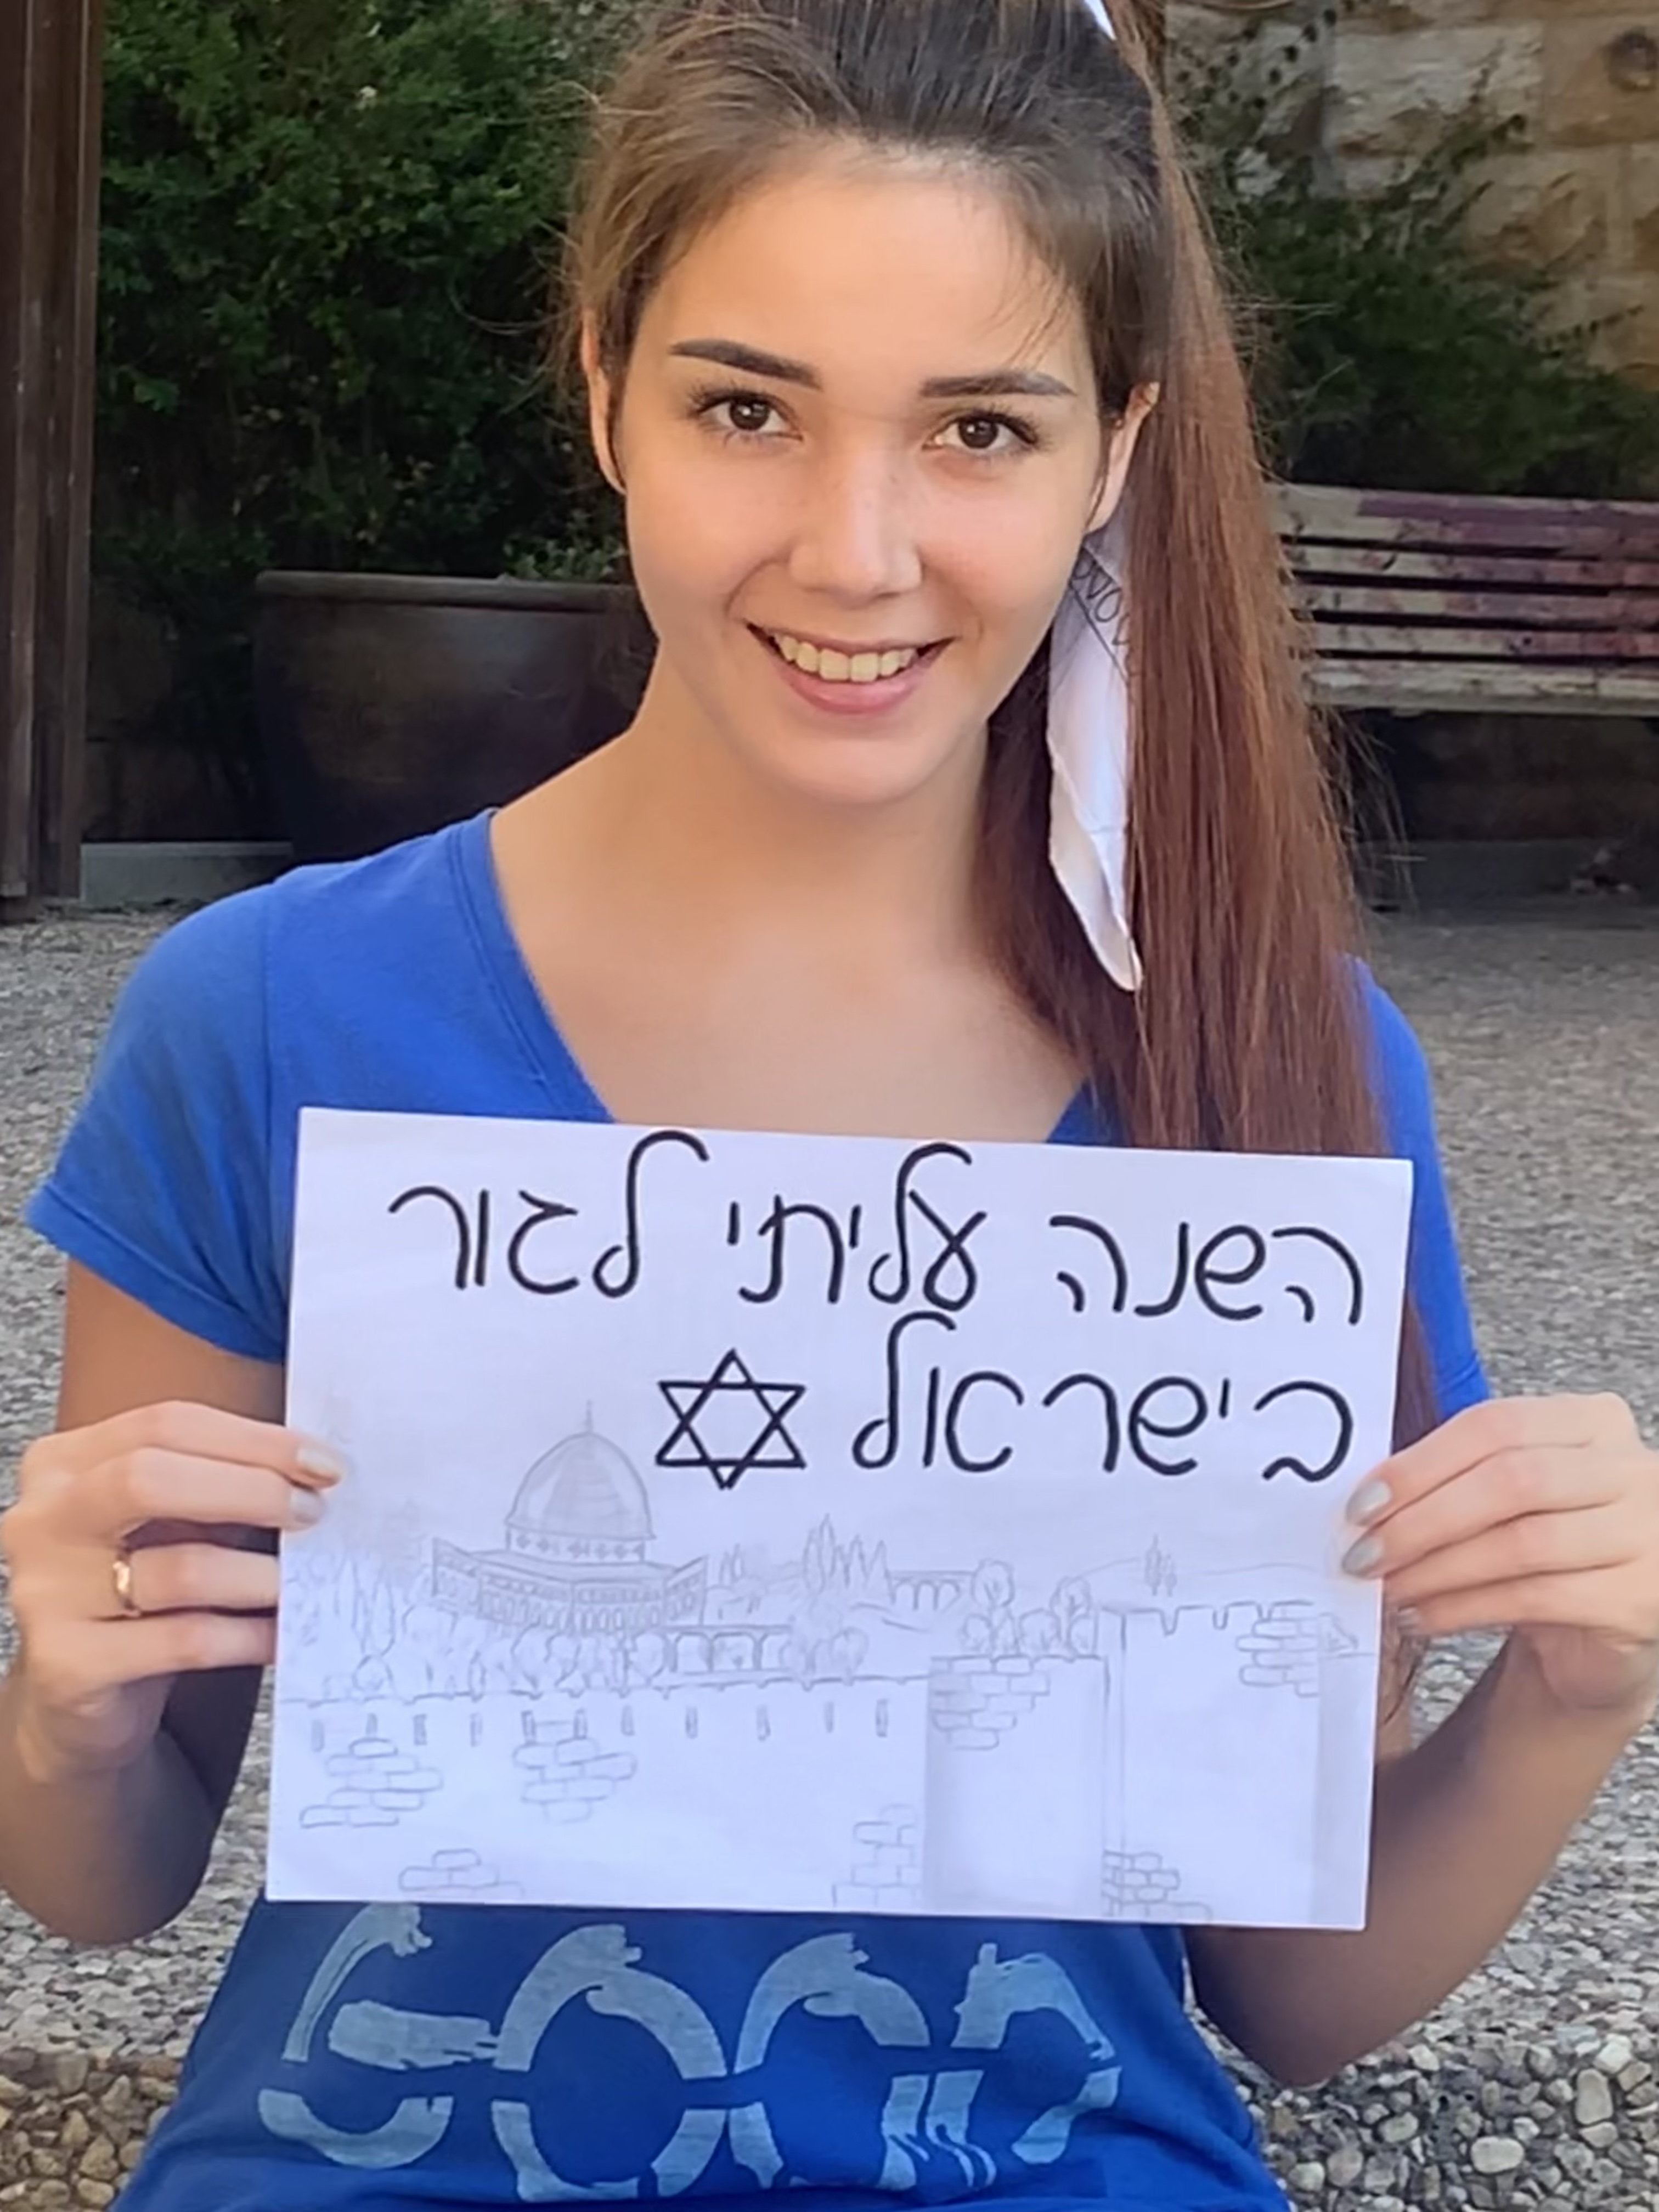 השנה עליתי לגור
בישראל
GOOD